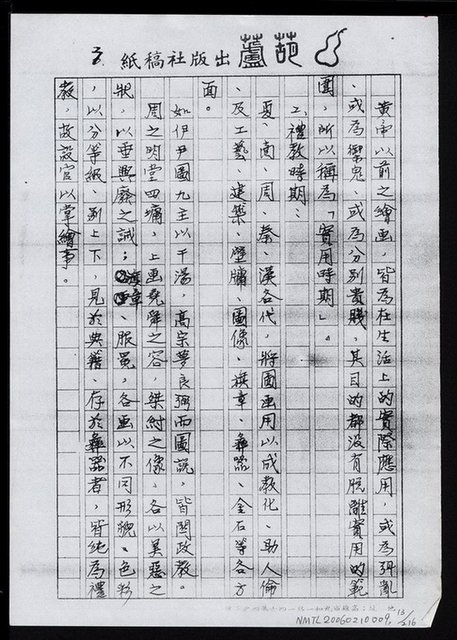 葫蘆出版社稿紙
3.
黃帝以前之繪畫，皆為在生活上的實際應用，或為弭亂
、或為禦鬼、或為分別貴賤，其目的都沒有脫離實用的範
圍，所以稱為「實用時期」。
2.禮教時期：
夏、商、周、秦、漢各代，將圖畫用以成教化、助人倫
、及工藝、建築、壁牖、圖像、旗章、彝器、金石等各方
面。
如伊尹圖九主以干湯，高宗夢良弼而圖說，皆關政教。
周之明堂四墉，上畫堯舜之容，桀紂之像，各以其惡之
狀，以垂興廢之誡；旗章、服冕，各畫以不同形貌、色彩
，以分等級、別上下，見於典籍、存於彝器者，皆純為禮
教，故設官以掌繪事。
NMTL20060210009
13/216